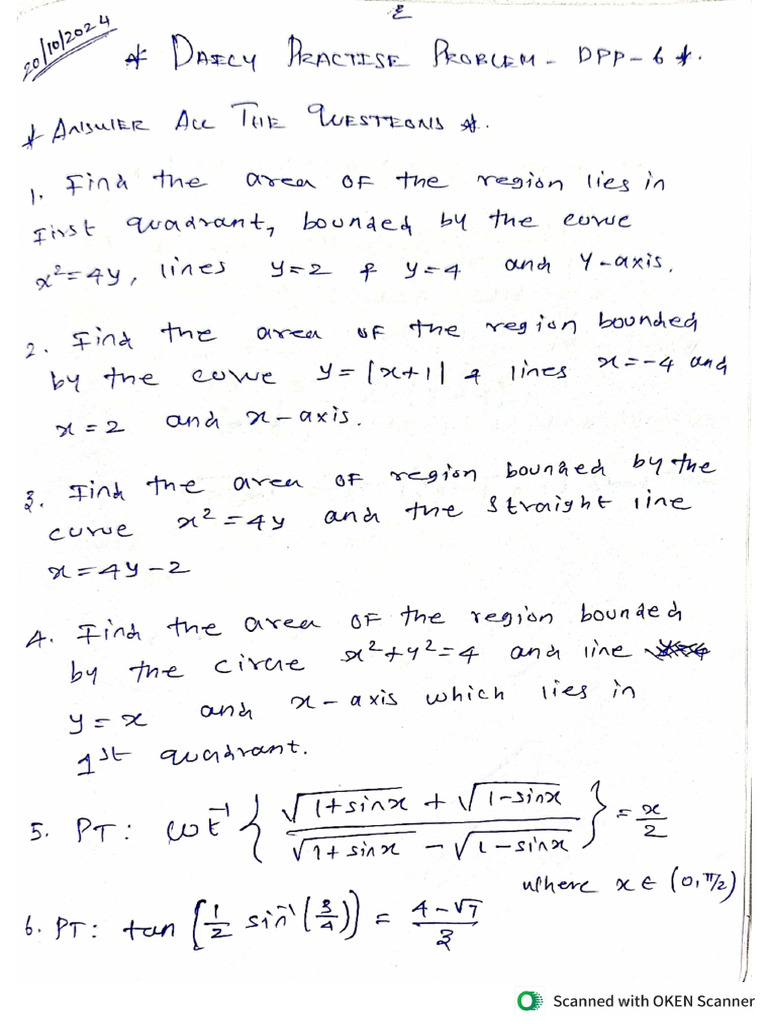 20/10/2024
2
* DAILY PRACTISE PROBLEM - DPP-6 *.
* ANSWER ALL THE QUESTIONS *.
1. Find the area OF the region lies in
First quadrant, bounded by the curve
x²=4y, lines y=2 & y=4 and Y-axis.
2. Find the area OF the region bounded
by the curve y=|x+1| & lines x=-4 and
x=2 and x-axis.
3. Find the area OF region bounded by the
curve x²=4y and the straight line
x=4y-2
4. Find the area OF the region bounded
by the circle x²+y²=4 and line
y=x and x-axis which lies in
1st quadrant.
5. PT: cot⁻¹ { (√1+sinx + √1-sinx) / (√1+sinx - √1-sinx) } = x/2
where x ∈ (0, π/2)
6. PT: tan [1/2 sin⁻¹(3/4)] = (4-√7)/3
Scanned with OKEN Scanner